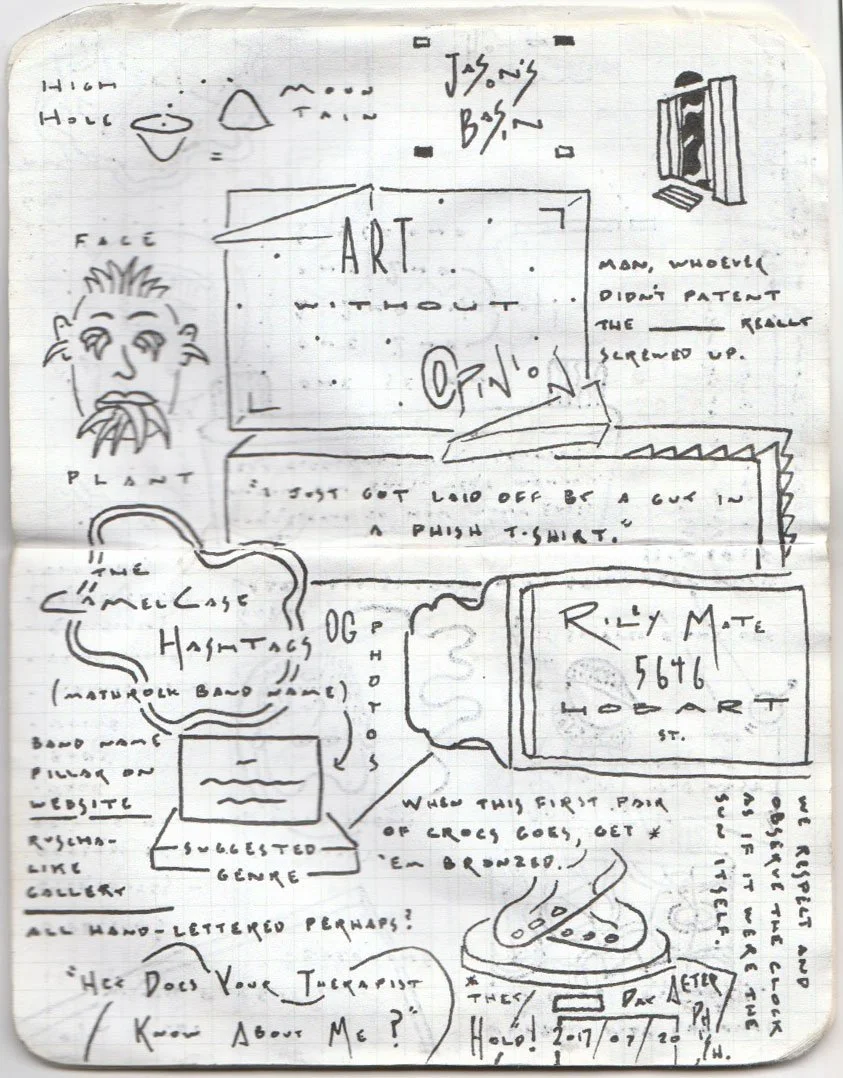 HIGH
HOLE
MOUN
TAIN
=
JASON'S
BASIN
FACE
PLANT
ART
WITHOUT
OPINION
MAN, WHOEVER
DIDN'T PATENT
THE ______ REALLY
SCREWED UP.
"I JUST GOT LAID OFF BY A GUY IN
A PHISH T-SHIRT."
THE
CAMELCASE
HASHTAGS
(MATHROCK BAND NAME)
OG
PHOTOS
RILEY MATE
5646
HOBART
ST.
BAND NAME
PILLAR ON
WEBSITE
RUSCHA-
LIKE
GALLERY
ALL HAND-LETTERED PERHAPS?
SUGGESTED
GENRE
WHEN THIS FIRST PAIR
OF CROCS GOES, GET *
'EM BRONZED.
WE RESPECT AND
OBSERVE THE CLOCK
AS IF IT WERE THE
SUN ITSELF.
"HEY DOES YOUR THERAPIST
KNOW ABOUT ME?"
* THEY
HOLD!
DAY AFTER
PHISH.
2017/07/20